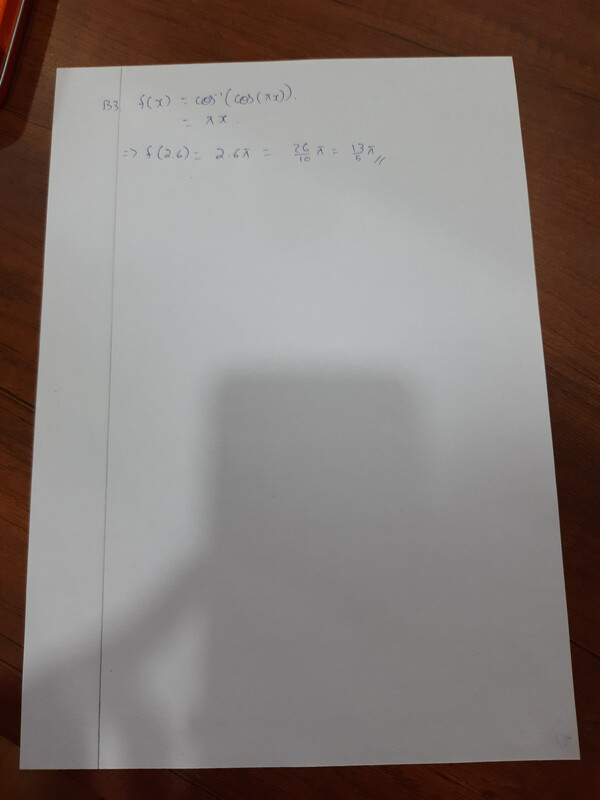 B3. f(x) = cos⁻¹(cos(πx)).
= πx.
=> f(2.6) = 2.6π = 26/10 π = 13/5 π //